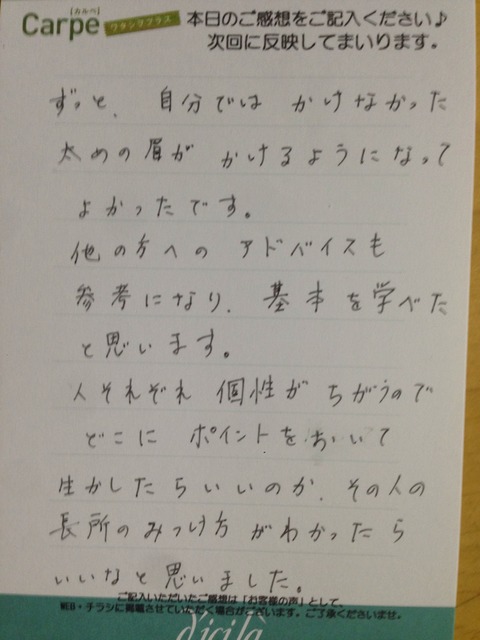 【カルペ】
Carpe
ワタシプラス
本日のご感想をご記入ください♪
次回に反映してまいります。
ずっと、自分では かけなかった
太めの眉が かけるようになって
よかったです。
他の方への アドバイスも
参考になり、基本を学べた
と思います。
人それぞれ 個性が ちがうので
どこに ポイントを おいて
生かしたらいいのか、その人の
長所のみつけ方 がわかったら
いいなと思いました。
ご記入いただいたご感想は「お客様の声」として、
WEB・チラシに掲載させていただく場合がございます。ご了承くださいませ。
Dicila